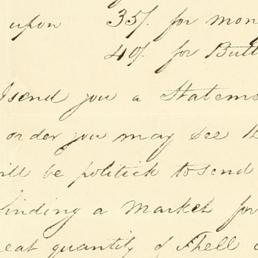 upon 35/. for mon
40/. for Butt
I send you a Statem
order you may see th
ill be politick to send
finding a Market for
eat quantity of Shell